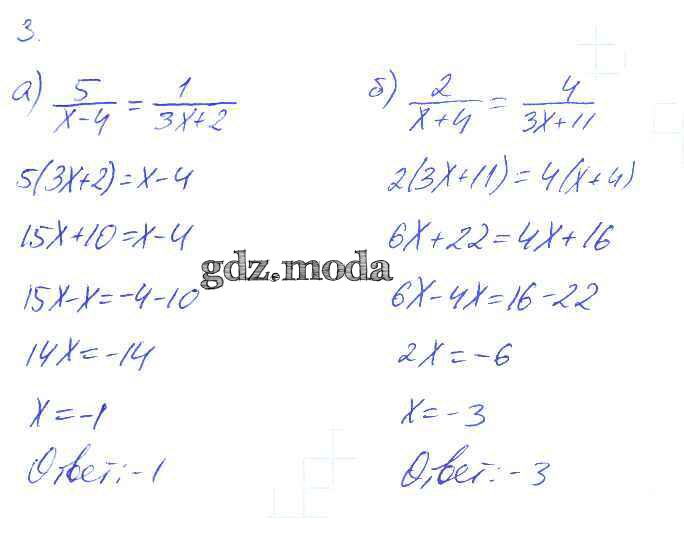 3.
а) 5/(x-4) = 1/(3x+2)
5(3x+2)=x-4
15x+10=x-4
15x-x=-4-10
14x=-14
x=-1
Ответ: -1
б) 2/(x+4) = 4/(3x+11)
2(3x+11)=4(x+4)
6x+22=4x+16
6x-4x=16-22
2x=-6
x=-3
Ответ: -3
gdz.moda